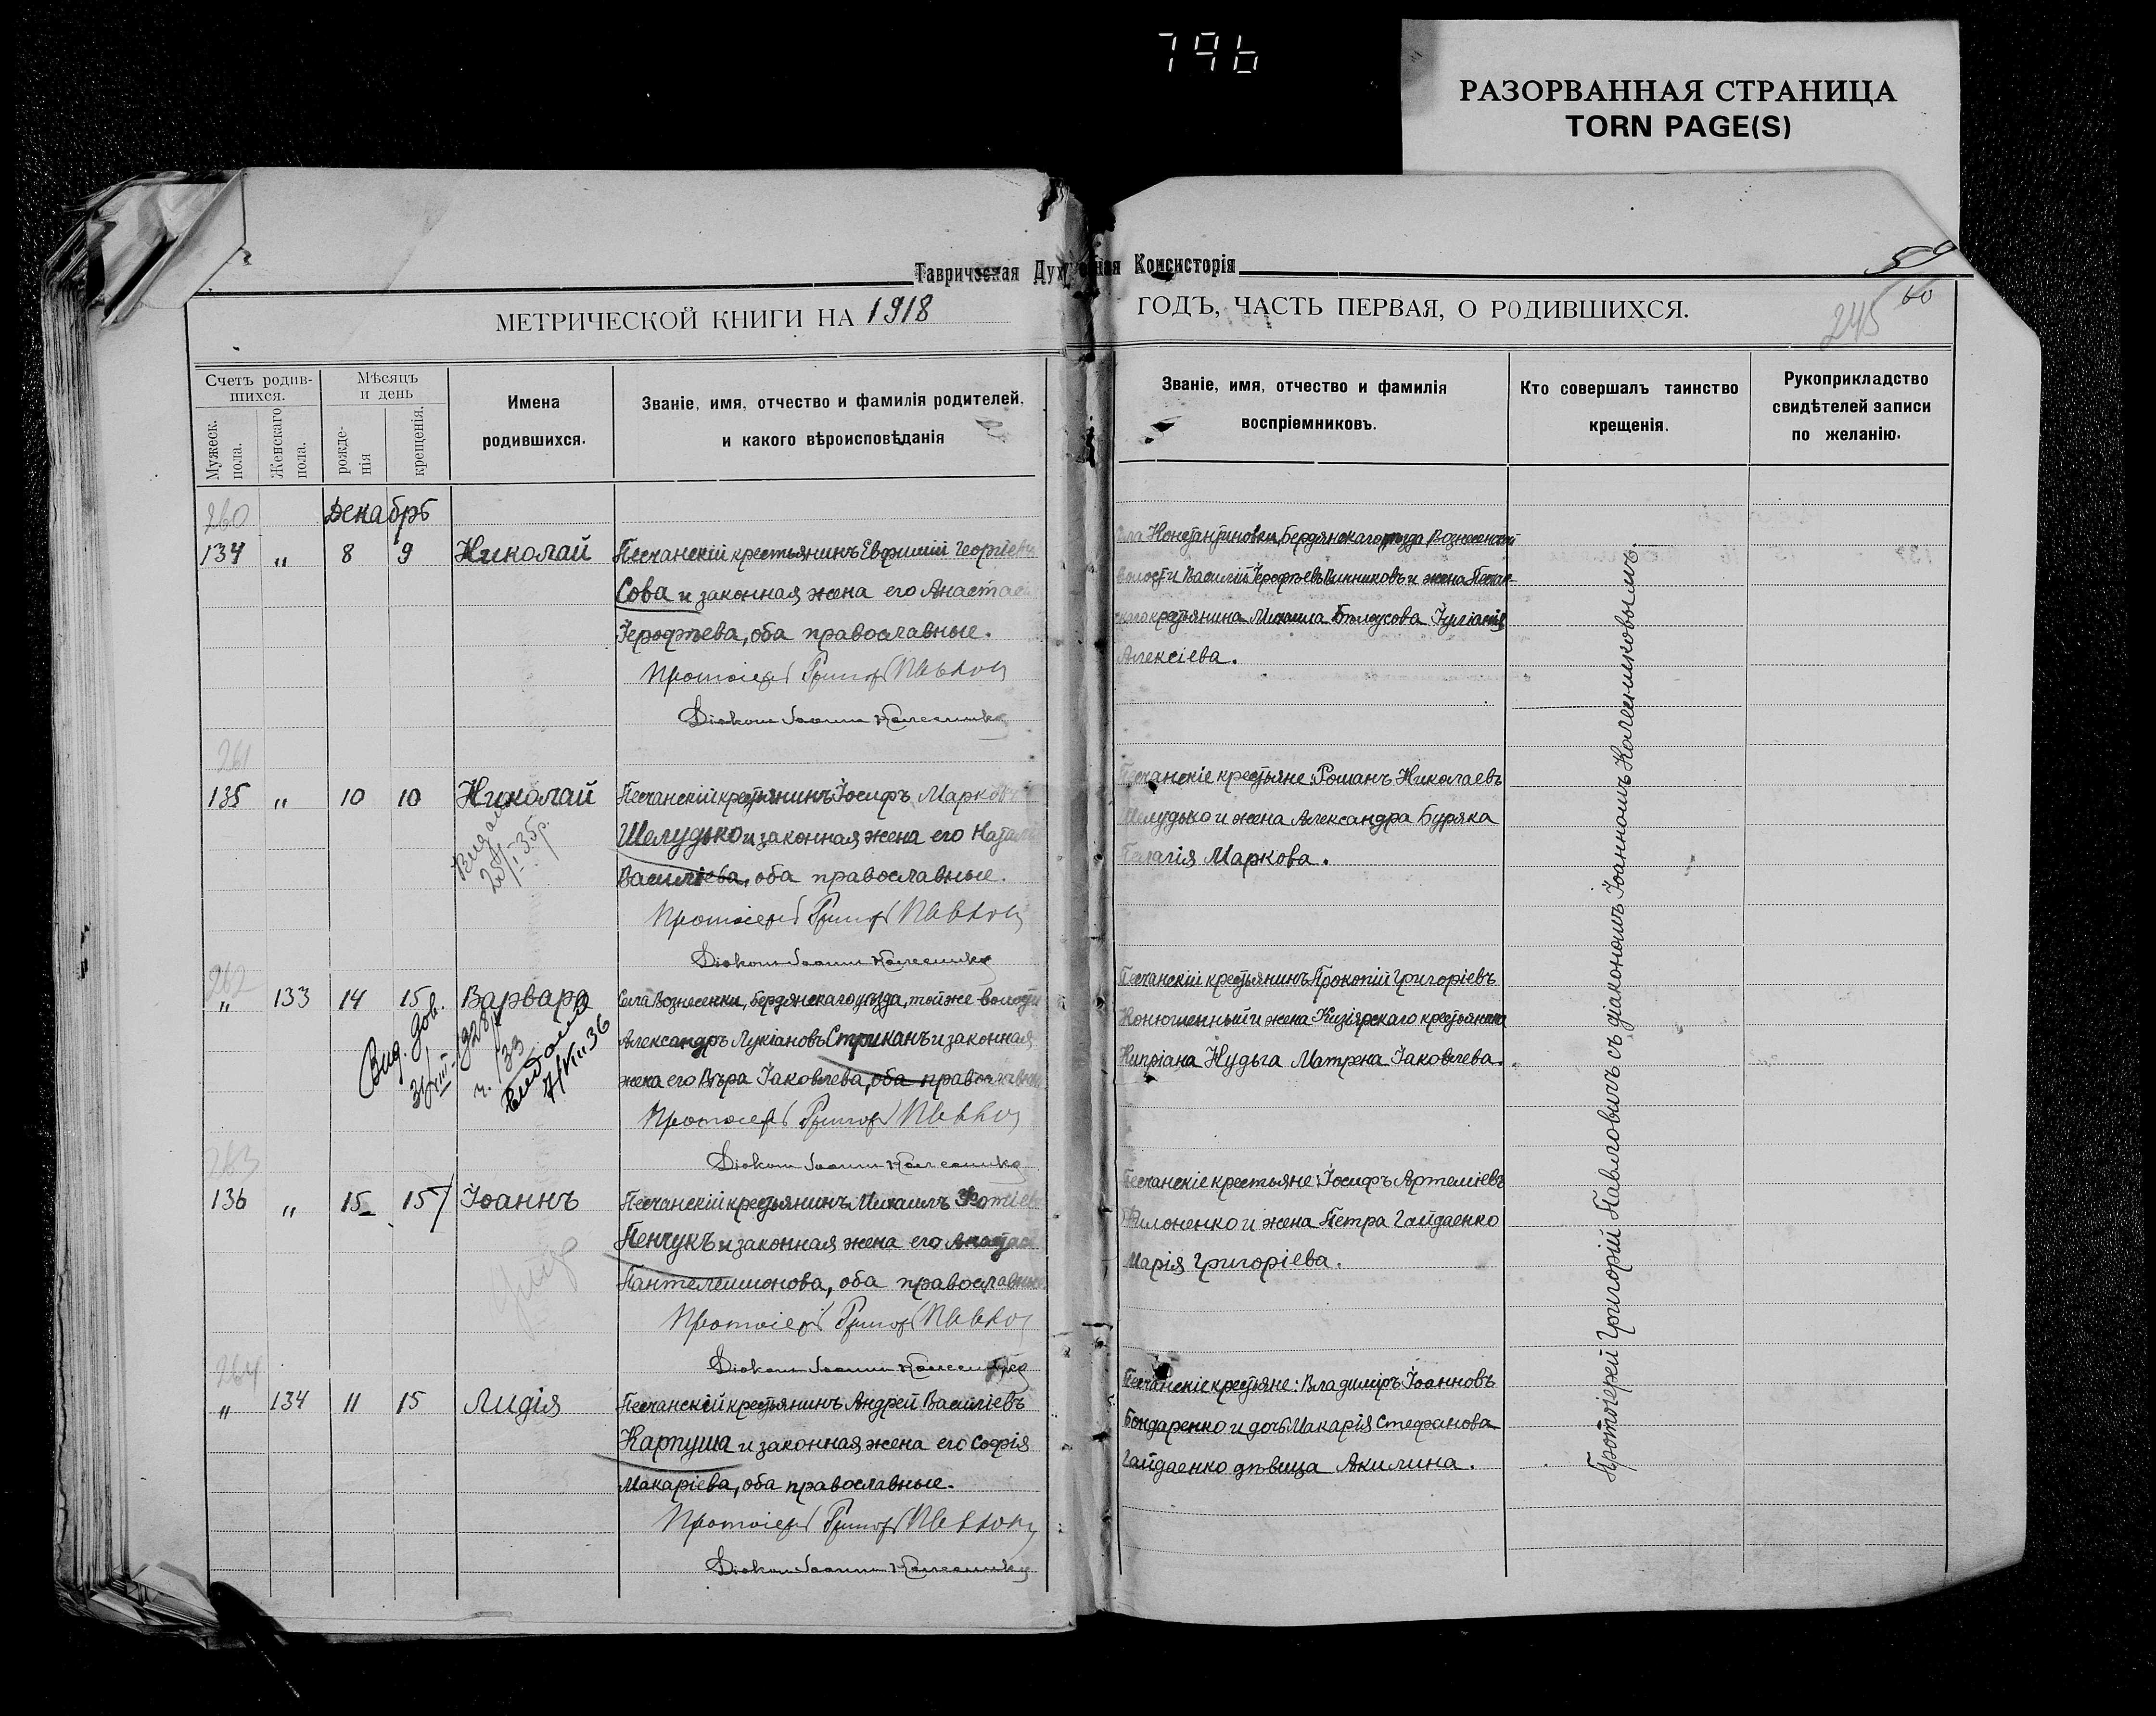 796
РАЗОРВАННАЯ СТРАНИЦА
TORN PAGE(S)
Таврическая Духовная Консисторія
59
60
245
МЕТРИЧЕСКОЙ КНИГИ НА 1918
ГОДЪ, ЧАСТЬ ПЕРВАЯ, О РОДИВШИХСЯ.
Счетъ родив-
шихся.
Мужеск.
пола.
Женскаго
пола.
Мѣсяцъ
и день
рожде-
нія
крещенія.
Имена
родившихся.
Званіе, имя, отчество и фамилія родителей,
и какого вѣроисповѣданія
Званіе, имя, отчество и фамилія
воспріемниковъ.
Кто совершалъ таинство
крещенія.
Рукоприкладство
свидѣтелей записи
по желанію.
260
Декабрь
134 " 8 9 Николай
Песчанскій крестьянинъ Евфимій Георгіевъ
Сова и законная жена его Анастасія
Іерофѣева, оба православные.
Протоіерей Григорій
Діаконъ Іоаннъ
Села Константиновки, Бердянскаго уѣзда Вознесенской
волости Василій Іерофѣевъ Винниковъ и жена Песчан-
скаго крестьянина Михаила Бѣлоусова Іуліанія
Алексіева.
261
135 " 10 10 Николай
Видано
25/I 35 р.
Песчанскій крестьянинъ Іосифъ Марковъ
Шелудько и законная жена его Наталія
Василіева, оба православные.
Протоіерей Григорій
Діаконъ Іоаннъ
Песчанскіе крестьяне: Романъ Николаевъ
Шелудько и жена Александра Буряка
Пелагія Маркова.
262
" 133 14 15 Варвара
Вид. дов.
31/VIII 1928 р.
ч. 133
Видано
36
Села Вознесенки, Бердянскаго уѣзда, той же волости
Александръ Лукіановъ Стриканъ и законная
жена его Вѣра Іаковлева, оба православные
Протоіерей Григорій
Діаконъ Іоаннъ
Песчанскій крестьянинъ Прокопій Григоріевъ
Конюшенный и жена Кизіярскаго крестьянина
Кипріана Нудьга Матрена Іаковлева.
263
136 " 15 15 Іоаннъ
Песчанскій крестьянинъ Михаилъ Фотіевъ
Пенчукъ и законная жена его Анастасія
Пантелеимонова, оба православные
Протоіерей Григорій
Діаконъ Іоаннъ
Песчанскіе крестьяне: Іосифъ Артеміевъ
Филоненко и жена Петра Гайдаенко
Марія Григоріева.
264
" 134 11 15 Лидія
Песчанскій крестьянинъ Андрей Василіевъ
Карпуша и законная жена его Софія
Макаріева, оба православные.
Протоіерей Григорій
Діаконъ Іоаннъ
Песчанскіе крестьяне: Владиміръ Іоанновъ
Бондаренко и дочь Макарія Стефанова
Гайдаенко дѣвица Акилина.
Протоіерей Григорій Павловичъ съ діакономъ Іоанномъ Колесниковымъ.